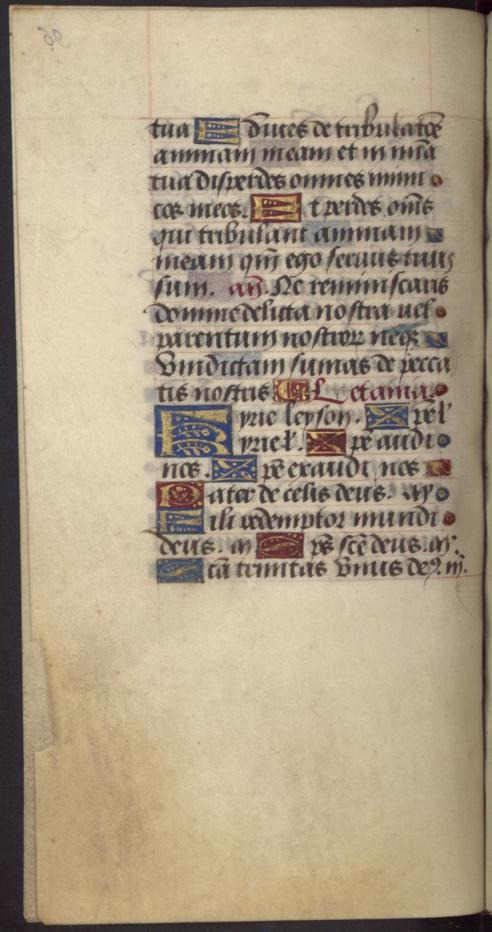 tua E duces de tribulatōe
animam meam et in mīa
tua disperdes omnes inimi
cos meos. E t perdes oms
qui tribulant animam
meam qm̄ ego seruus tuus
sum. añ. Ne reminiscaris
domine delicta nostra uel
parentum nostror neqꝫ
vindictam sumas de pecca
tis nostris Letania.
K yrie leyson. X pēl
K yriel. X pē audi
nos. X pē exaudi nos
P ater de celis deus. m̄
F ili redemptor mundi
deus. m̄ S ps̄ scē deus. m̄.
S cā trinitas vnus de9. m̄.